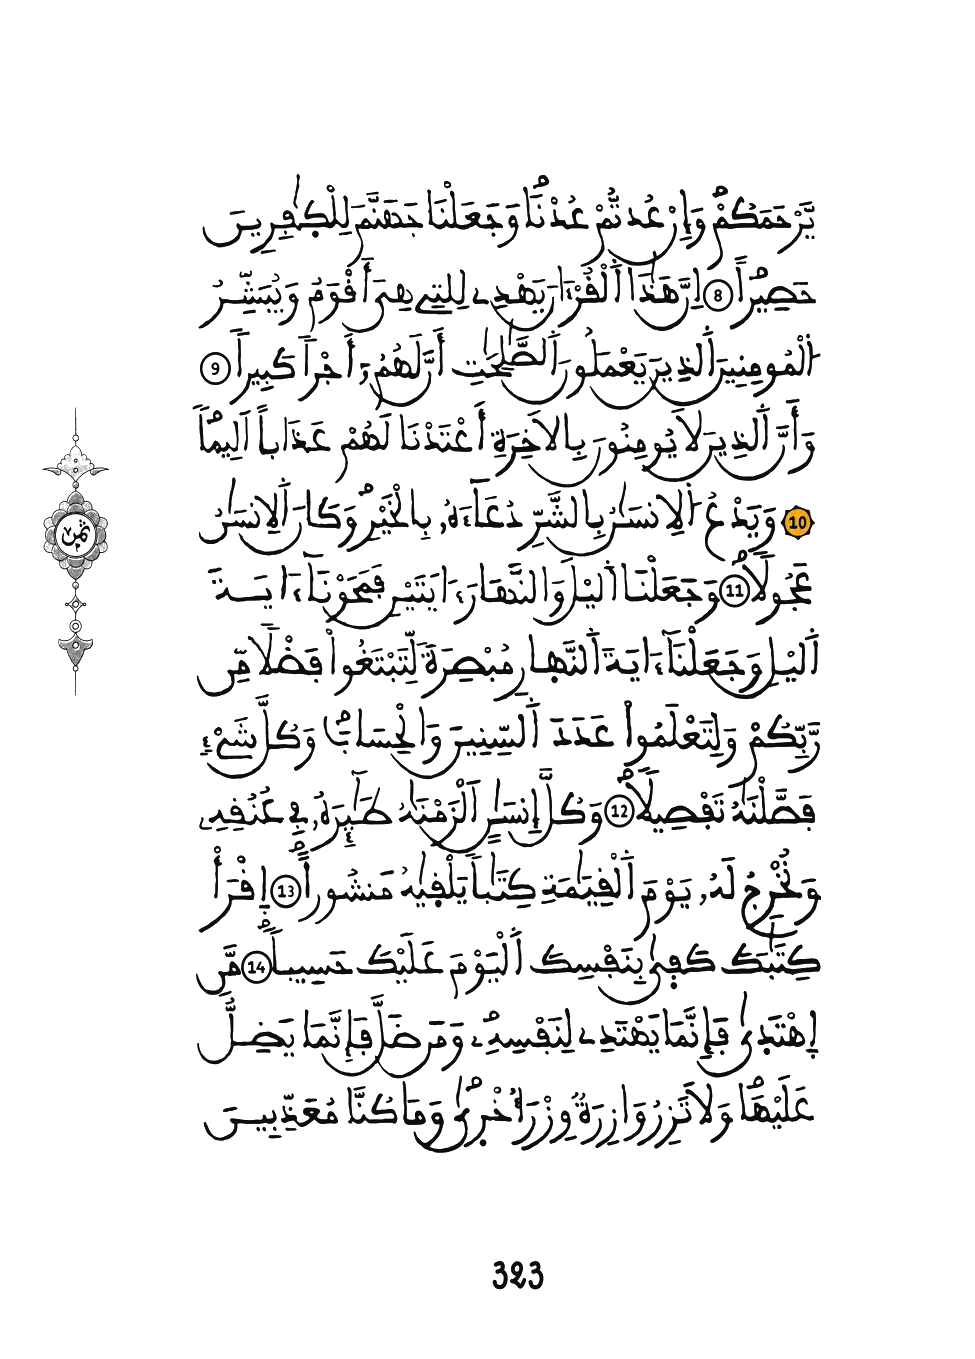 يَّرْحَمَكُمْ وَإِنْ عُدتُّمْ عُدْنَا وَجَعَلْنَا جَهَنَّمَ لِلْكٰفِرِينَ
حَصِيراً 8 اِنَّ هَٰذَا اَ۬لْقُرْءَانَ يَهْدِے لِلتِے هِيَ أَقْوَمُ وَيُبَشِّرُ
اُ۬لْمُومِنِينَ اَ۬لذِينَ يَعْمَلُونَ اَ۬لصَّٰلِحَٰتِ أَنَّ لَهُمُۥٓ أَجْراٗ كَبِيراً 9
وَأَنَّ اَ۬لذِينَ لَا يُومِنُونَ بِالَاخِرَةِ أَعْتَدْنَا لَهُمْ عَذَاباً اَلِيماٗ
10 وَيَدْعُ اُ۬لِانسَٰنُ بِالشَّرِّ دُعَآءَهُۥ بِالْخَيْرِ وَكَانَ اَ۬لِانسَٰنُ
عَجُولاٗ 11 وَجَعَلْنَا اَ۬ليْلَ وَالنَّهَارَ ءَايَتَيْنِ فَمَحَوْنَآ ءَايَةَ
اَ۬ليْلِ وَجَعَلْنَآ ءَايَةَ اَ۬لنَّهَارِ مُبْصِرَةٗ لِّتَبْتَغُواْ فَضْلاٗ مِّن
رَّبِّكُمْ وَلِتَعْلَمُواْ عَدَدَ اَ۬لسِّنِينَ وَالْحِسَابَ وَكُلَّ شَےْءٖ
فَصَّلْنَٰهُ تَفْصِيلاٗ 12 وَكُلَّ إِنسَٰنٍ اَلْزَمْنَٰهُ طَٰٓئِرَهُۥ فِے عُنُقِهِۦ
وَنُخْرِجُ لَهُۥ يَوْمَ اَ۬لْقِيَٰمَةِ كِتَٰباٗ يَلْقٰيٰهُ مَنشُوراً 13 اِ۪قْرَأْ
كِتَٰبَكَ كَف۪يٰ بِنَفْسِكَ اَ۬لْيَوْمَ عَلَيْكَ حَسِيباٗ 14 مَّنِ
اِ۪هْتَد۪يٰ فَإِنَّمَا يَهْتَدِے لِنَفْسِهِۦ وَمَن ضَلَّ فَإِنَّمَا يَضِلُّ
عَلَيْهَا وَلَا تَزِرُ وَازِرَةٞ وِزْرَ أُخْر۪يٰ وَمَا كُنَّا مُعَذِّبِينَ
ثمن
323